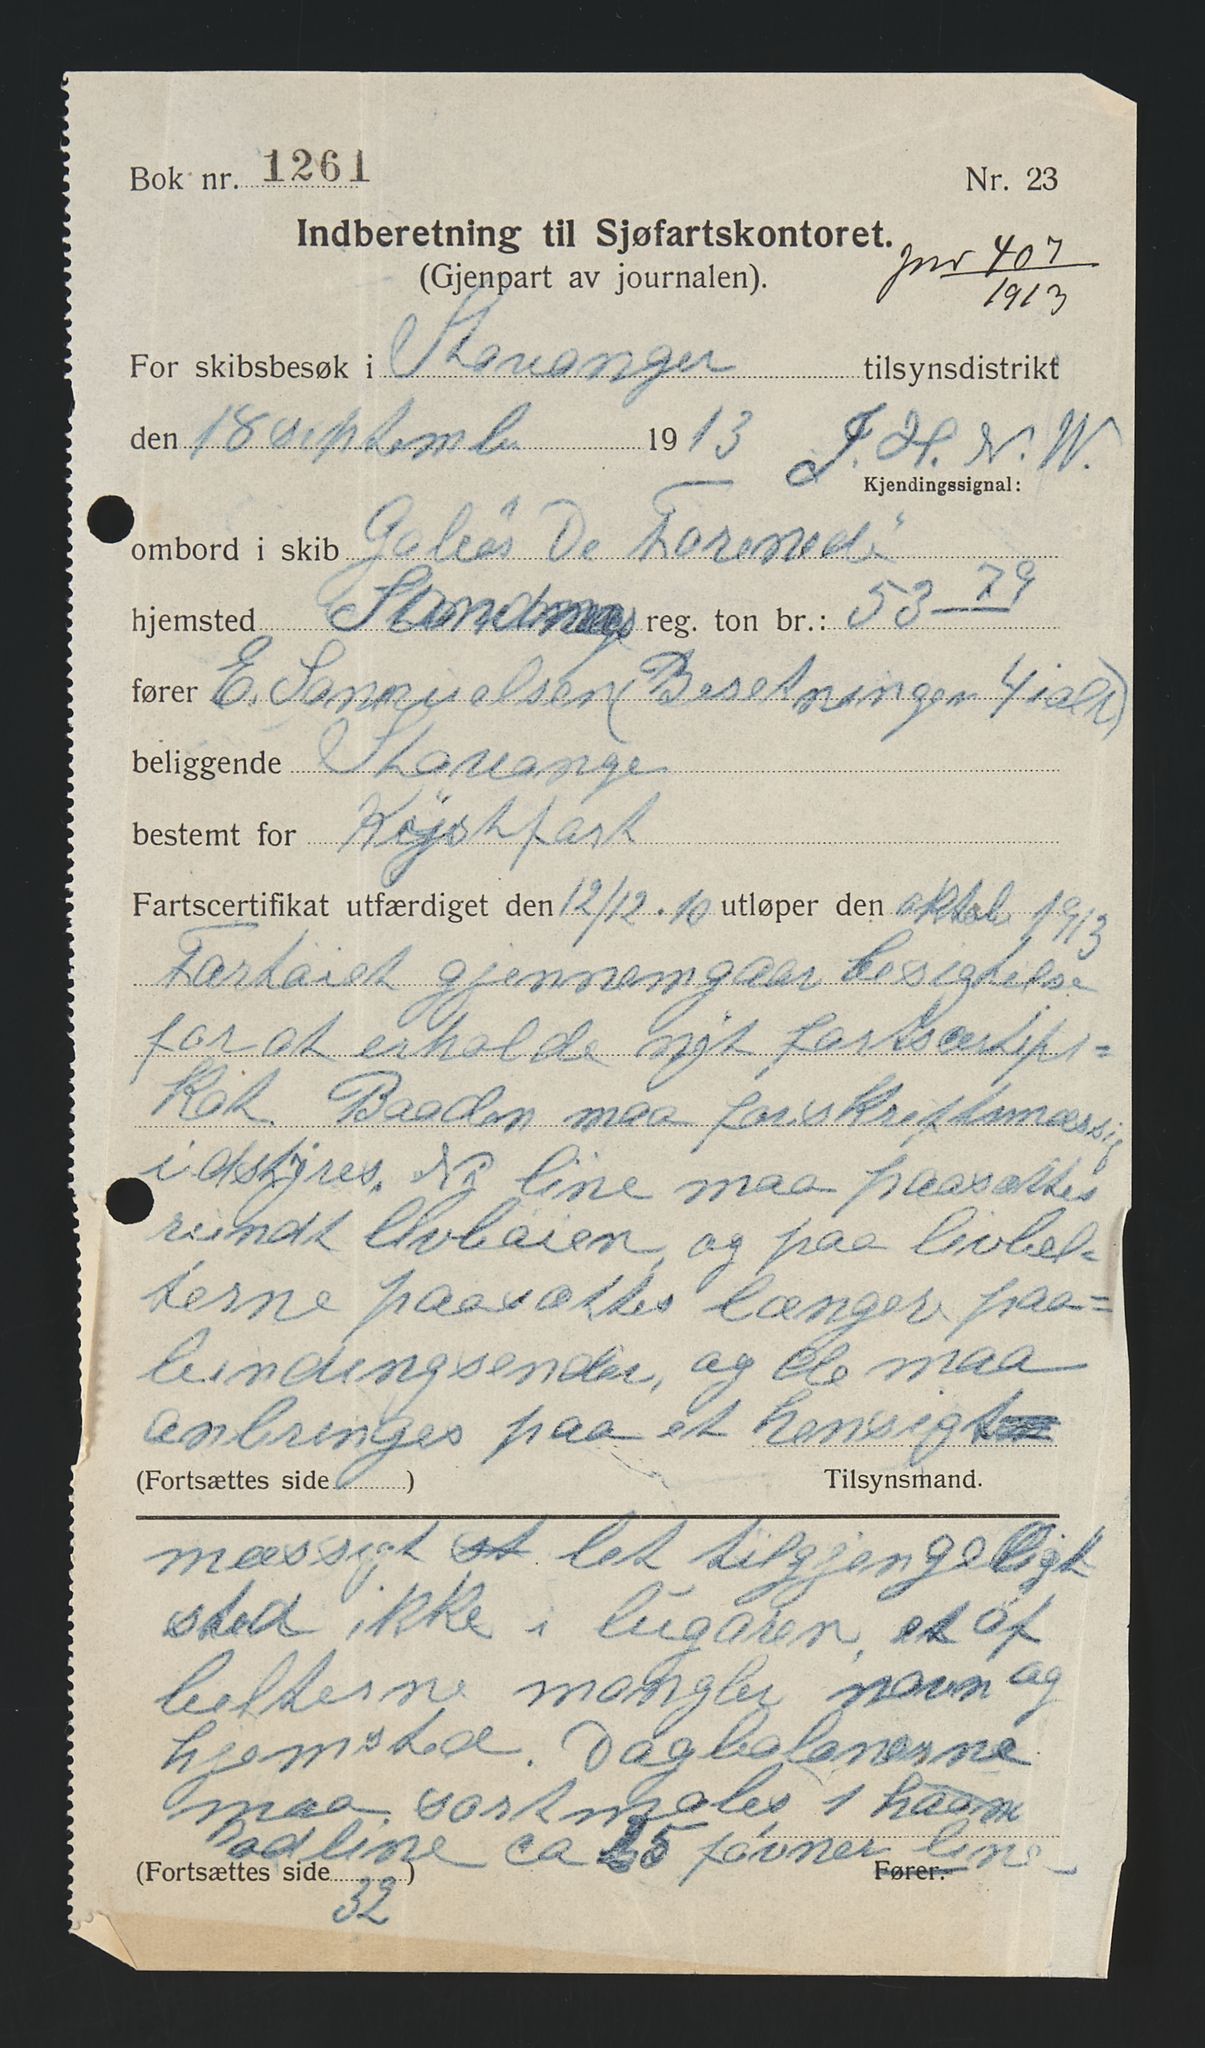 Bok nr. 1261 Nr. 23
Indberetning til Sjøfartskontoret.
(Gjenpart av journalen).
jnr 407
1913
For skibsbesøk i Stavanger tilsynsdistrikt
den 18 septembe 1913 J. H. N. W.
Kjendingssignal:
ombord i skib Galeas "De Forenede"
hjemsted reg. ton br.: 53 79
fører E. Samuelsen (Besetningen 4 ialt)
beliggende Stavange
bestemt for Kystfart
Fartscertifikat utfærdiget den 12/12. 10 utløper den oktob 1913
Fartøiet gjennemgaar besigtelse
for at erholde nyt fartscertifi=
kat. Baaden maa forskriftsmæssig
idstyres. Ny line maa paasættes
rundt livbøien, og paa livbel=
terne paasættes længere paa=
bindingsender, og de maa
anbringes paa et hensigt
(Fortsættes side ) Tilsynsmand.
mæssigt let tilgjengeligt
sted ikke i lugaren, et af
belterne mangler navn og
hjemsted. Dagbalonerne
maa sortmales, 1 haan
lodline ca 25 favner line
(Fortsættes side ) Fører.
32